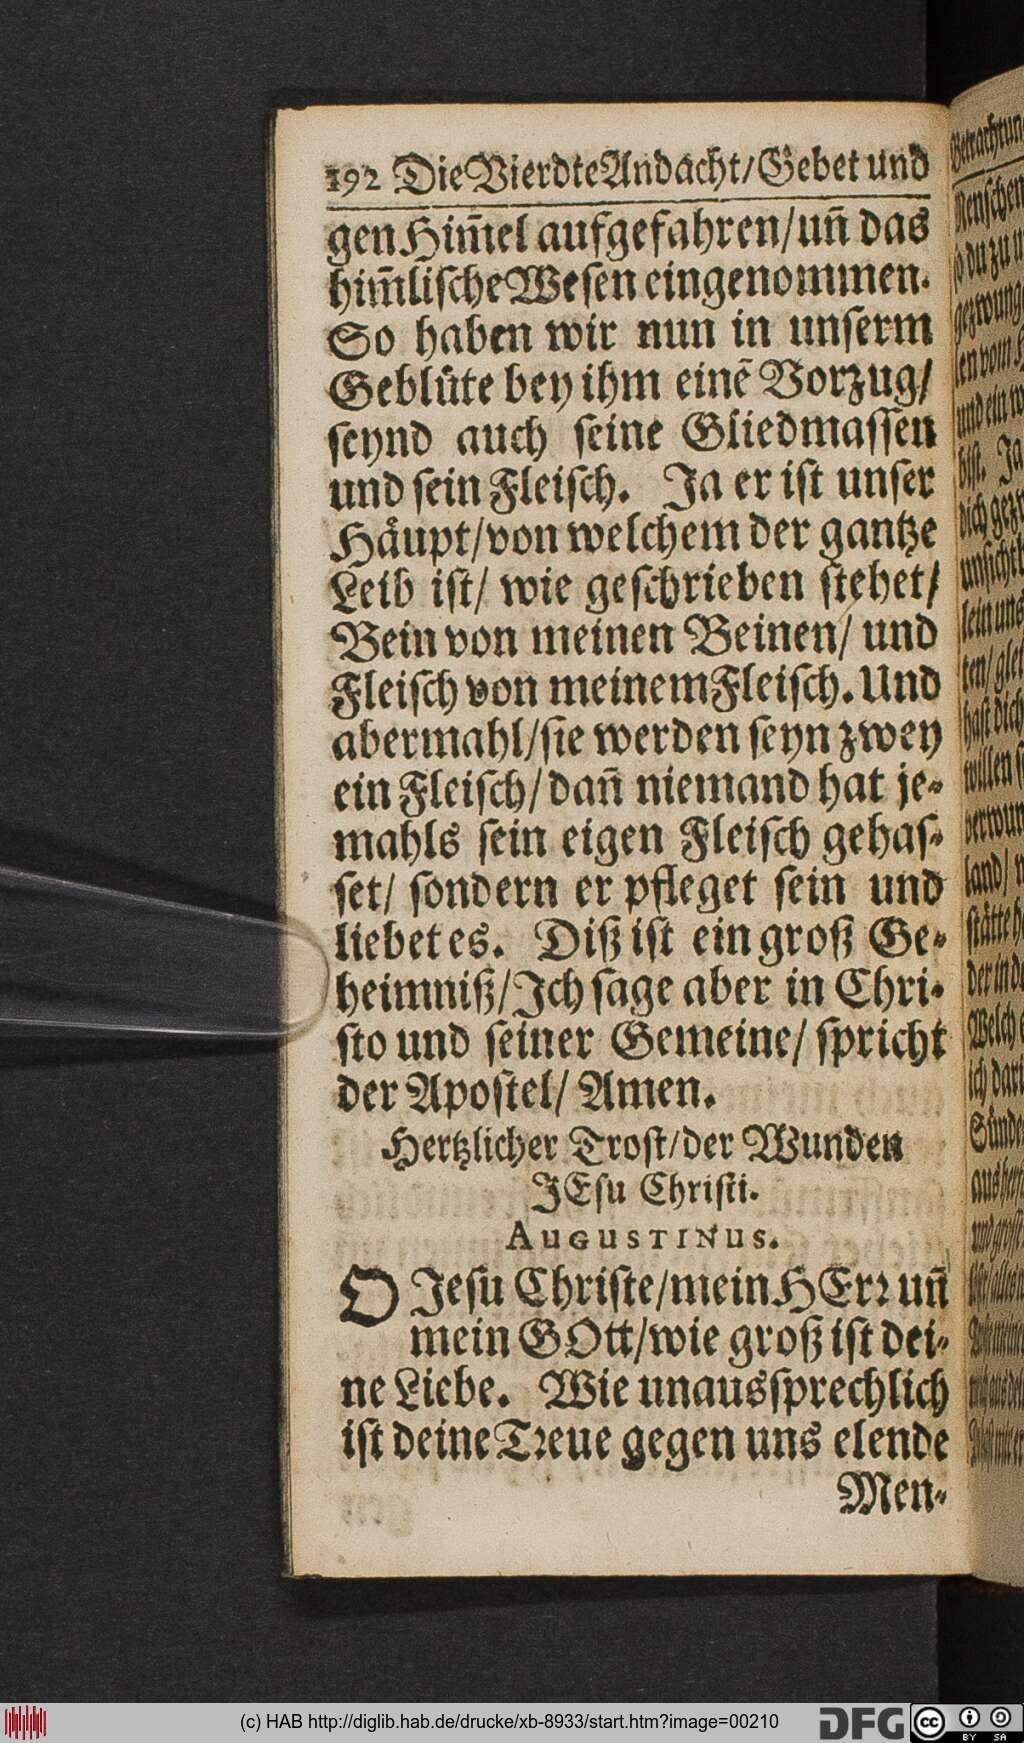 192 Die Vierdte Andacht/Gebet und
gen Him̃el aufgefahren/uñ das
him̃lische Wesen eingenommen.
So haben wir nun in unserm
Geblüte bey ihm einẽ Vorzug/
seynd auch seine Gliedmassen
und sein Fleisch. Ja er ist unser
Häupt/von welchem der gantze
Leib ist/ wie geschrieben stehet/
Bein von meinen Beinen/ und
Fleisch von meinem Fleisch. Und
abermahl/sie werden seyn zwey
ein Fleisch/dañ niemand hat je-
mahls sein eigen Fleisch gehas-
set/ sondern er pfleget sein und
liebet es. Diß ist ein groß Ge-
heimniß/Ich sage aber in Chri-
sto und seiner Gemeine/ spricht
der Apostel/ Amen.
Hertzlicher Trost/der Wunden
JEsu Christi.
AUGUSTINUS.
O Jesu Christe/mein HErr uñ
mein GOtt/wie groß ist dei-
ne Liebe. Wie unaussprechlich
ist deine Treue gegen uns elende
Men-
(c) HAB http://diglib.hab.de/drucke/xb-8933/start.htm?image=00210
DFG
cc BY SA